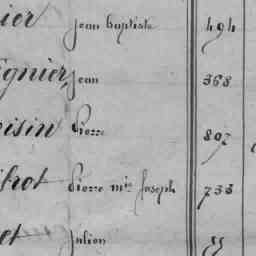 ier Jean baptiste 494
ignier, Jean 368
oisin Pierre 807
Pierre mie Joseph 733
et Julien 55